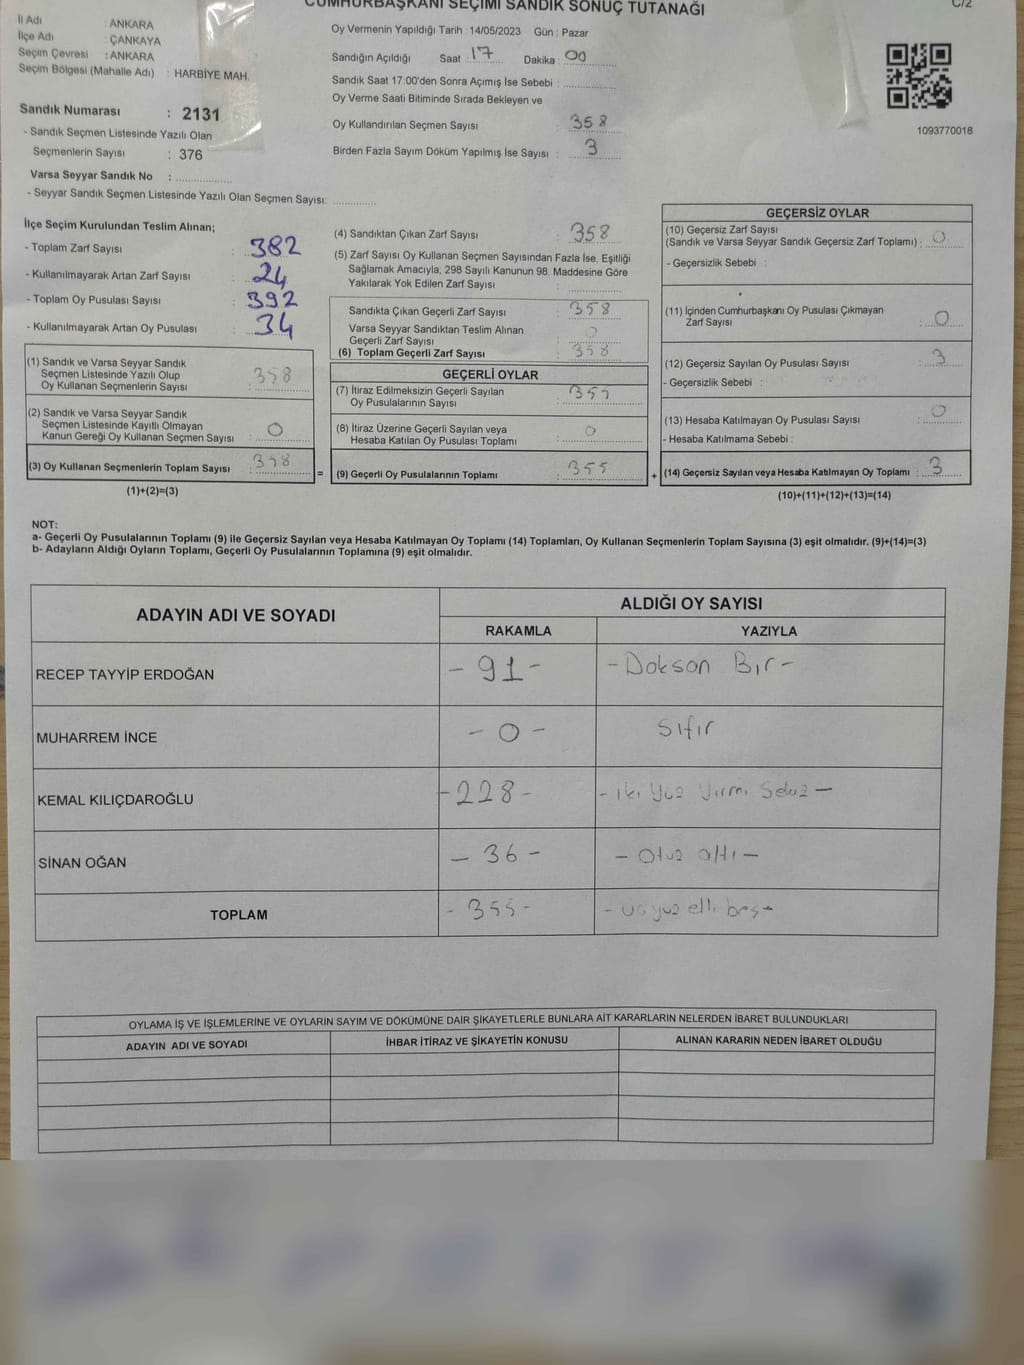 CUMHURBAŞKANI SEÇİMİ SANDIK SONUÇ TUTANAĞI
C/2
İl Adı : ANKARA
İlçe Adı : ÇANKAYA
Seçim Çevresi : ANKARA
Seçim Bölgesi (Mahalle Adı) : HARBİYE MAH.
Sandık Numarası : 2131
- Sandık Seçmen Listesinde Yazılı Olan
Seçmenlerin Sayısı : 376
Varsa Seyyar Sandık No :
- Seyyar Sandık Seçmen Listesinde Yazılı Olan Seçmen Sayısı:
Oy Vermenin Yapıldığı Tarih : 14/05/2023 Gün : Pazar
Sandığın Açıldığı Saat : 17 Dakika : 00
Sandık Saat 17:00'den Sonra Açımış İse Sebebi :
Oy Verme Saati Bitiminde Sırada Bekleyen ve
Oy Kullandırılan Seçmen Sayısı : 358
Birden Fazla Sayım Döküm Yapılmış İse Sayısı : 3
1093770018
İlçe Seçim Kurulundan Teslim Alınan;
- Toplam Zarf Sayısı : 382
- Kullanılmayarak Artan Zarf Sayısı : 24
- Toplam Oy Pusulası Sayısı : 392
- Kullanılmayarak Artan Oy Pusulası : 34
(1) Sandık ve Varsa Seyyar Sandık
Seçmen Listesinde Yazılı Olup
Oy Kullanan Seçmenlerin Sayısı : 358
(2) Sandık ve Varsa Seyyar Sandık
Seçmen Listesinde Kayıtlı Olmayan
Kanun Gereği Oy Kullanan Seçmen Sayısı : 0
(3) Oy Kullanan Seçmenlerin Toplam Sayısı : 358
(1)+(2)=(3)
(4) Sandıktan Çıkan Zarf Sayısı : 358
(5) Zarf Sayısı Oy Kullanan Seçmen Sayısından Fazla İse, Eşitliği
Sağlamak Amacıyla; 298 Sayılı Kanunun 98. Maddesine Göre
Yakılarak Yok Edilen Zarf Sayısı :
Sandıkta Çıkan Geçerli Zarf Sayısı : 358
Varsa Seyyar Sandıktan Teslim Alınan
Geçerli Zarf Sayısı : 0
(6) Toplam Geçerli Zarf Sayısı : 358
GEÇERLİ OYLAR
(7) İtiraz Edilmeksizin Geçerli Sayılan
Oy Pusulalarının Sayısı : 355
(8) İtiraz Üzerine Geçerli Sayılan veya
Hesaba Katılan Oy Pusulası Toplamı : 0
= (9) Geçerli Oy Pusulalarının Toplamı : 355
GEÇERSİZ OYLAR
(10) Geçersiz Zarf Sayısı
(Sandık ve Varsa Seyyar Sandık Geçersiz Zarf Toplamı) : 0
- Geçersizlik Sebebi :
(11) İçinden Cumhurbaşkanı Oy Pusulası Çıkmayan
Zarf Sayısı : 0
(12) Geçersiz Sayılan Oy Pusulası Sayısı : 3
- Geçersizlik Sebebi :
(13) Hesaba Katılmayan Oy Pusulası Sayısı : 0
- Hesaba Katılmama Sebebi :
+ (14) Geçersiz Sayılan veya Hesaba Katılmayan Oy Toplamı : 3
(10)+(11)+(12)+(13)=(14)
NOT:
a- Geçerli Oy Pusulalarının Toplamı (9) ile Geçersiz Sayılan veya Hesaba Katılmayan Oy Toplamı (14) Toplamları, Oy Kullanan Seçmenlerin Toplam Sayısına (3) eşit olmalıdır. (9)+(14)=(3)
b- Adayların Aldığı Oyların Toplamı, Geçerli Oy Pusulalarının Toplamına (9) eşit olmalıdır.
ADAYIN ADI VE SOYADI
ALDIĞI OY SAYISI
RAKAMLA YAZIYLA
RECEP TAYYİP ERDOĞAN - 91 - - Dokson Bir -
MUHARREM İNCE - 0 - Sıfır
KEMAL KILIÇDAROĞLU - 228 - - iki yüz yirmi Sekiz -
SİNAN OĞAN - 36 - - Otuz altı -
TOPLAM - 355 - - üç yüz elli beş -
OYLAMA İŞ VE İŞLEMLERİNE VE OYLARIN SAYIM VE DÖKÜMÜNE DAİR ŞİKAYETLERLE BUNLARA AİT KARARLARIN NELERDEN İBARET BULUNDUKLARI
ADAYIN ADI VE SOYADI İHBAR İTİRAZ VE ŞİKAYETİN KONUSU ALINAN KARARIN NEDEN İBARET OLDUĞU